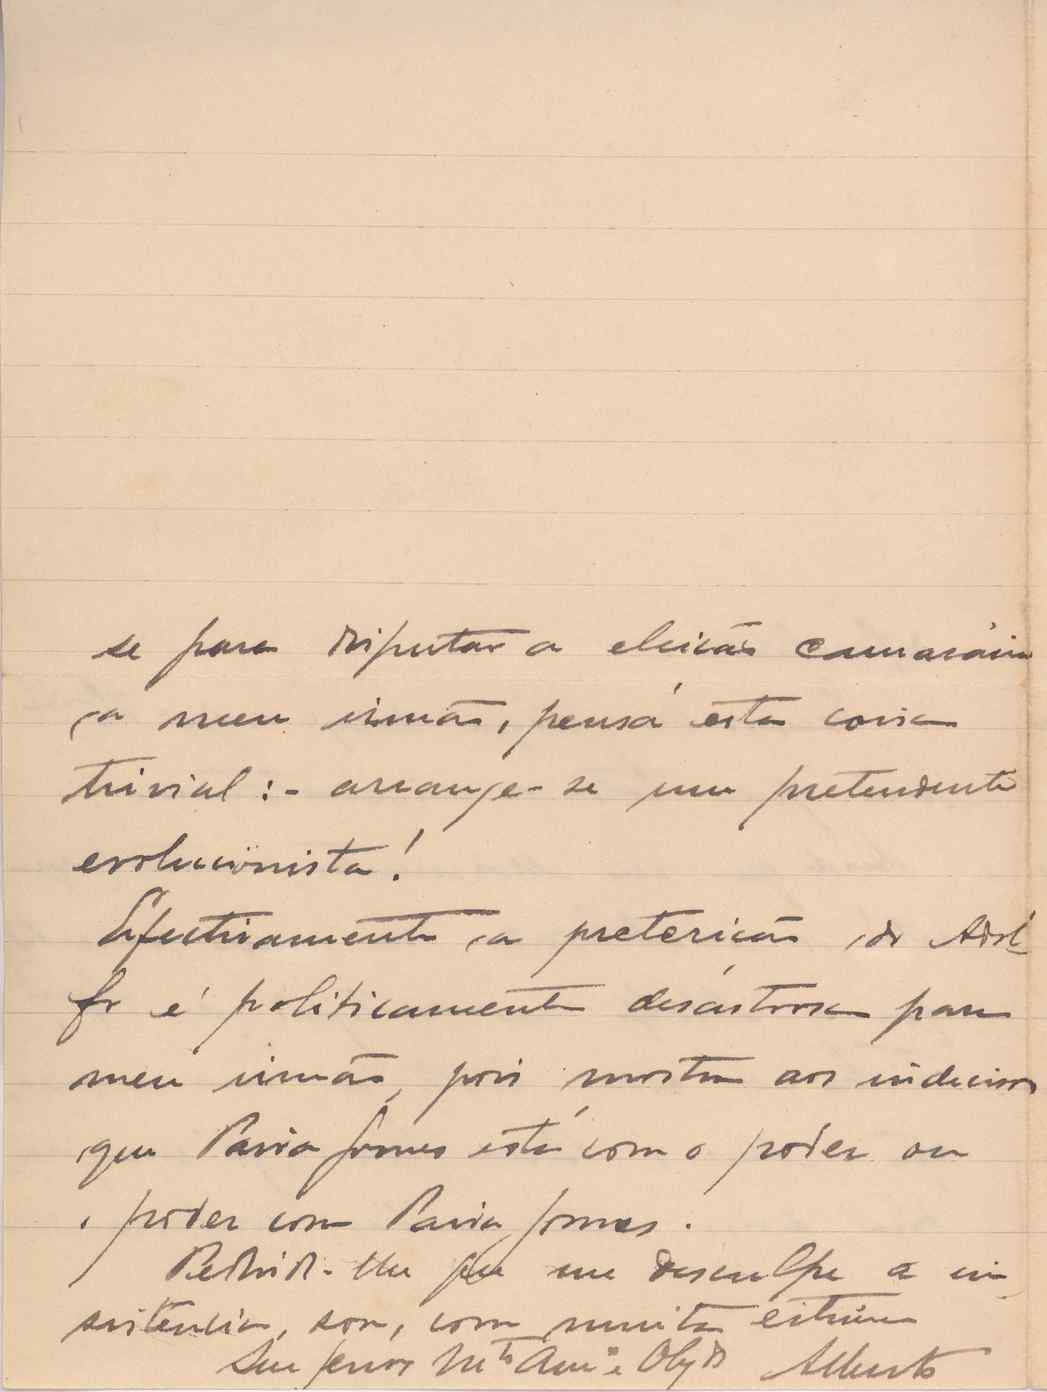 se para disputar a eleição camarária
a meu irmão, pensa esta coisa
trivial: - arranje-se um pretendente
evolucionista!
Efectivamente a preterição do Adol-
fo é politicamente desástrosa para
meu irmão, pois mostra aos indecisos
que Paiva Gomes está com o poder ou
o poder com Paiva Gomes.
Pedindo-lhe que me desculpe a in-
sistencia, sou, com muita estima
Seu Mto Amo e Obgdo Alberto